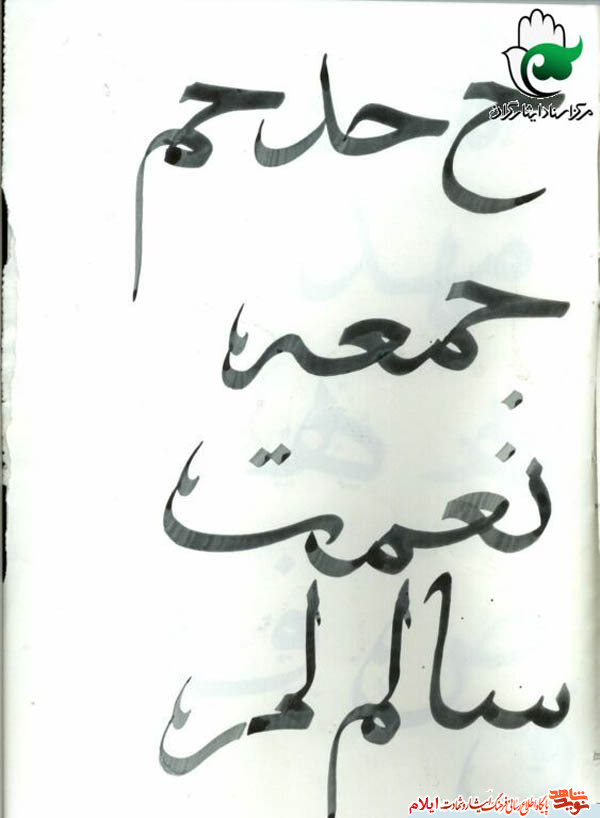 مرکز اسناد ایثارگران
ح حد حم
جمعه
نعمت
سالم لمر
نوید شاهد پایگاه اطلاع رسانی فرهنگ ایثار و شهادت ایلام